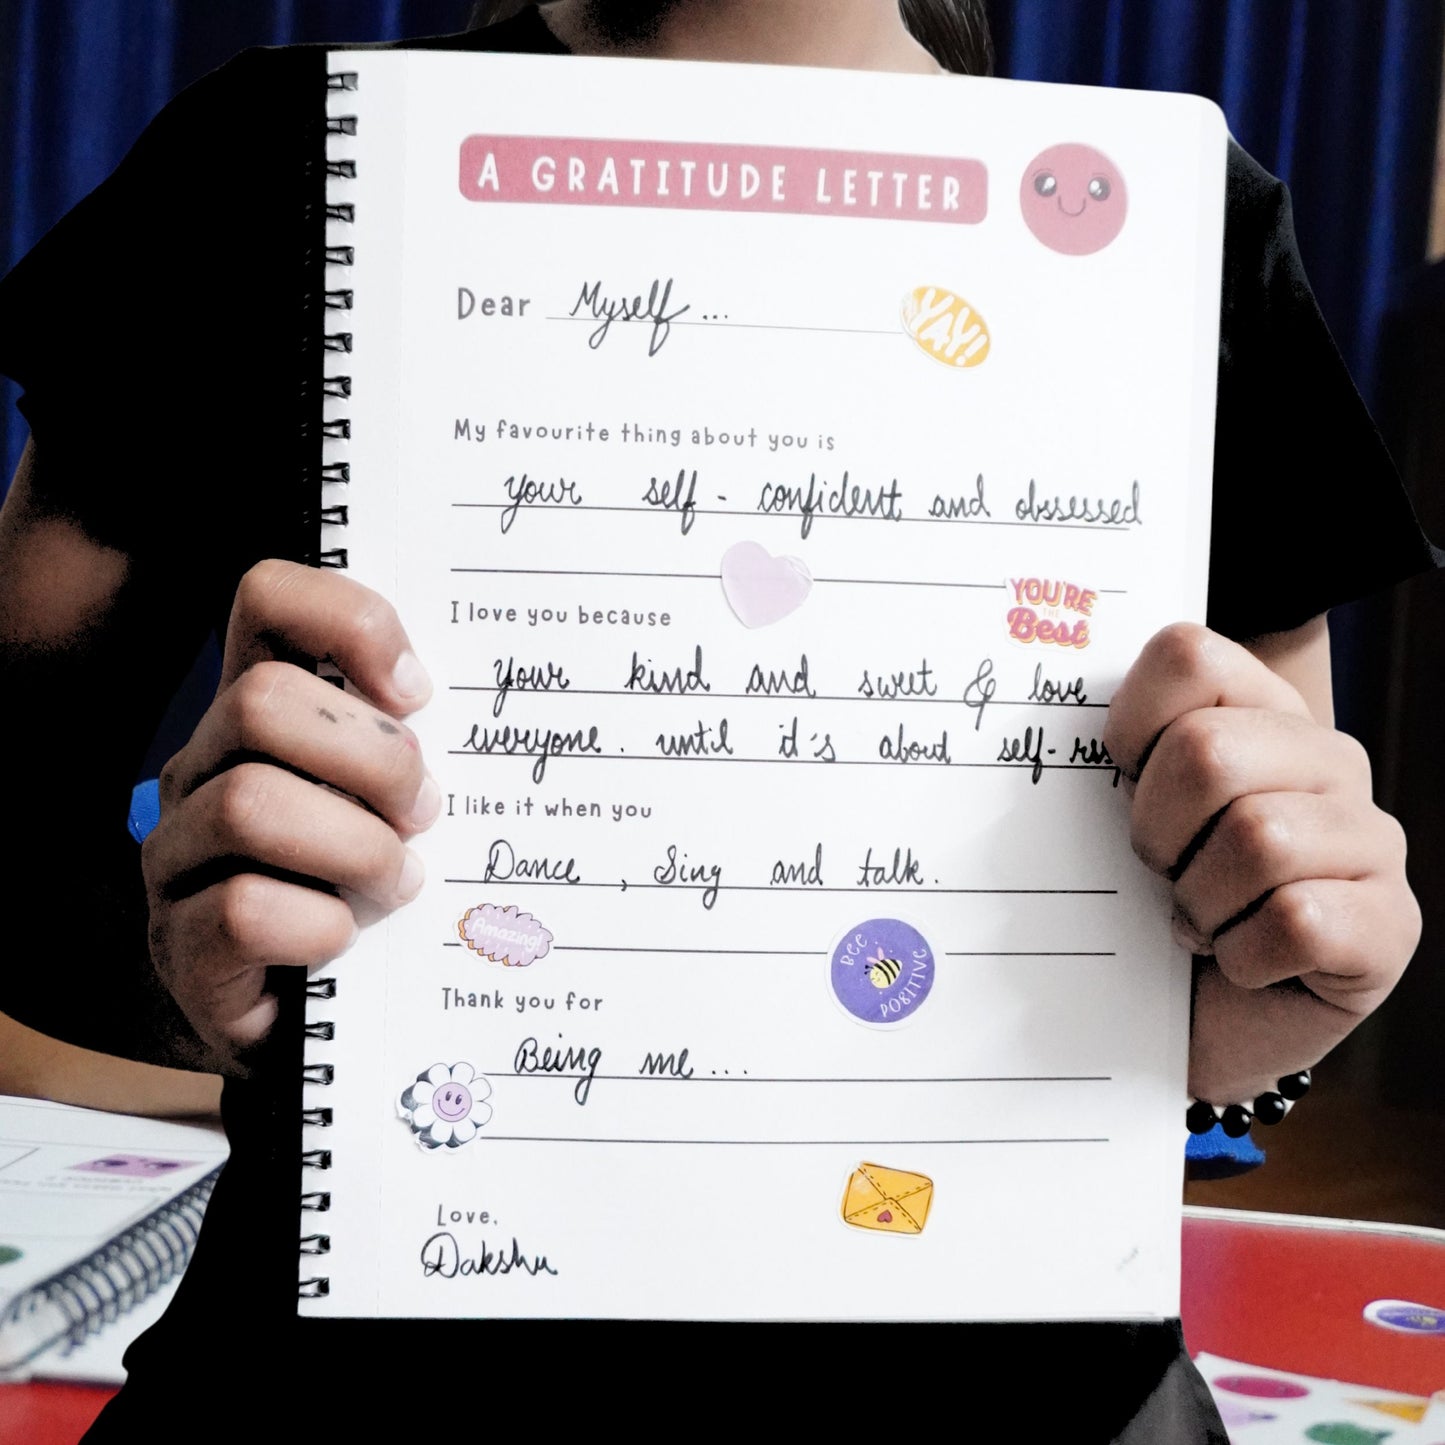 A GRATITUDE LETTER
Dear Myself...
YAY!
My favourite thing about you is
your self-confident and obssessed
I love you because
YOU'RE
THE
Best
your kind and sweet & love
everyone. until it's about self-resp
I like it when you
Dance, Sing and talk.
Amazing!
BEE POSITIVE
Thank you for
Being me...
Love,
Dakshu